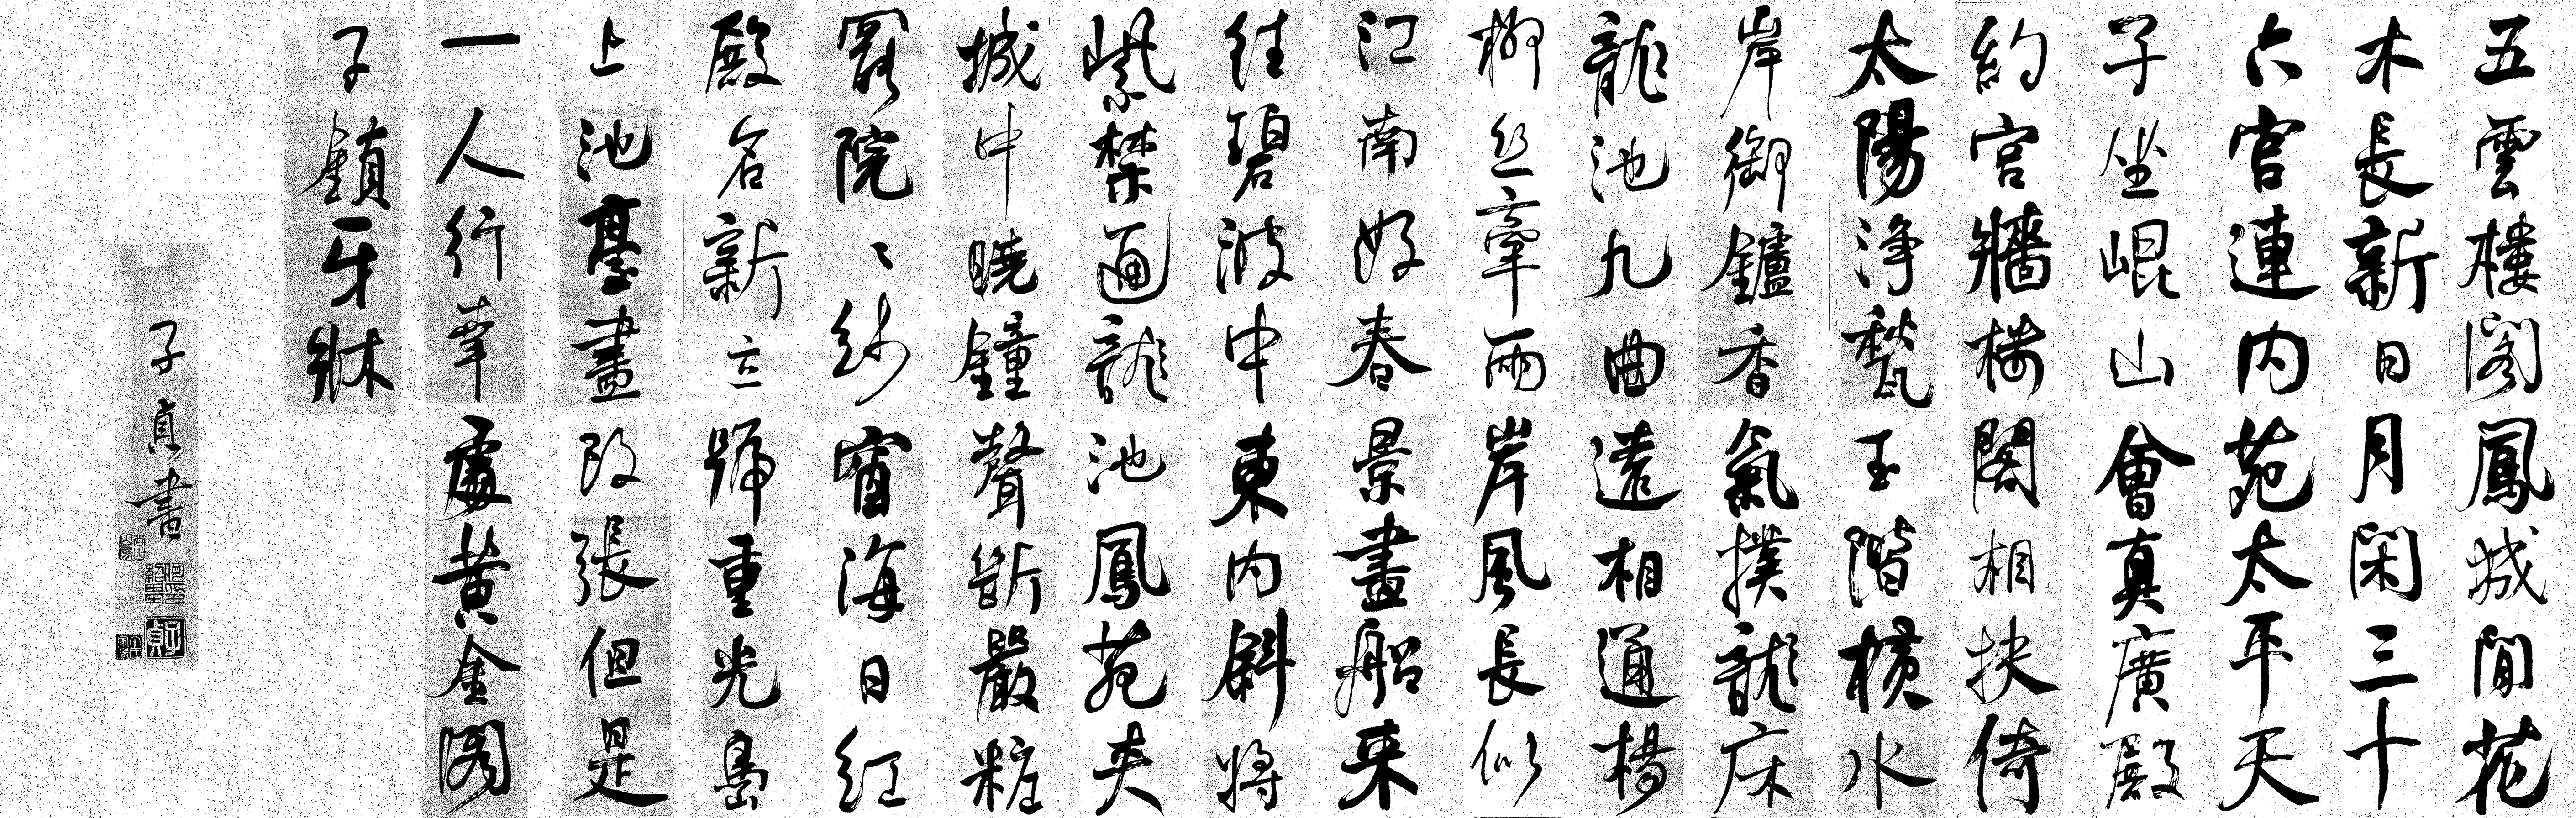 五雲樓閣鳳城間花
木長新日月閑三十
六宫連内苑太平天
子坐崐山會真廣殿
約宫牆樓閣相扶倚
太陽淨甃玉階横水
岸御鑪香氣撲龍床
龍池九曲遠相通楊
柳丝牽兩岸風長似
江南好春景畫船来
往碧波中東内斜将
紫禁通龍池鳳苑夹
城中曉鐘聲斷嚴粧
罷院〻紗窗海日紅
殿名新立號重光島
上池臺盡改張但是
一人行幸處黄金閣
子鎮牙牀
子貞書